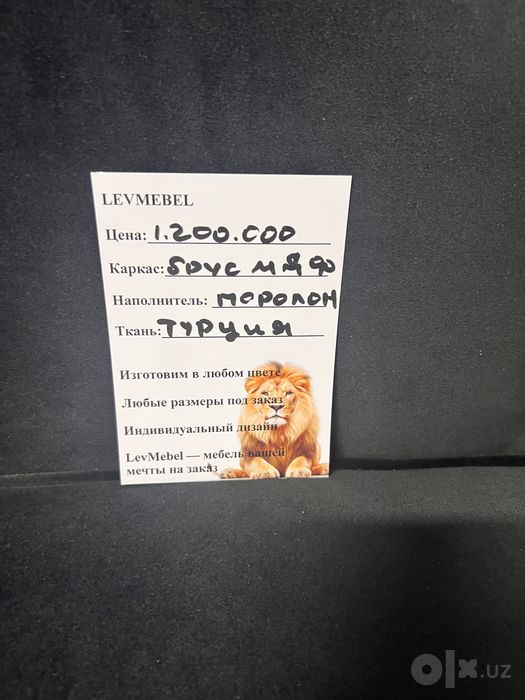 LEVMEBEL
Цена: 1.200.000
Каркас: брус мдф
Наполнитель: поролон
Ткань: Турция
Изготовим в любом цвете
Любые размеры под заказ
Индивидуальный дизайн
LevMebel — мебель вашей
мечты на заказ
olx.uz